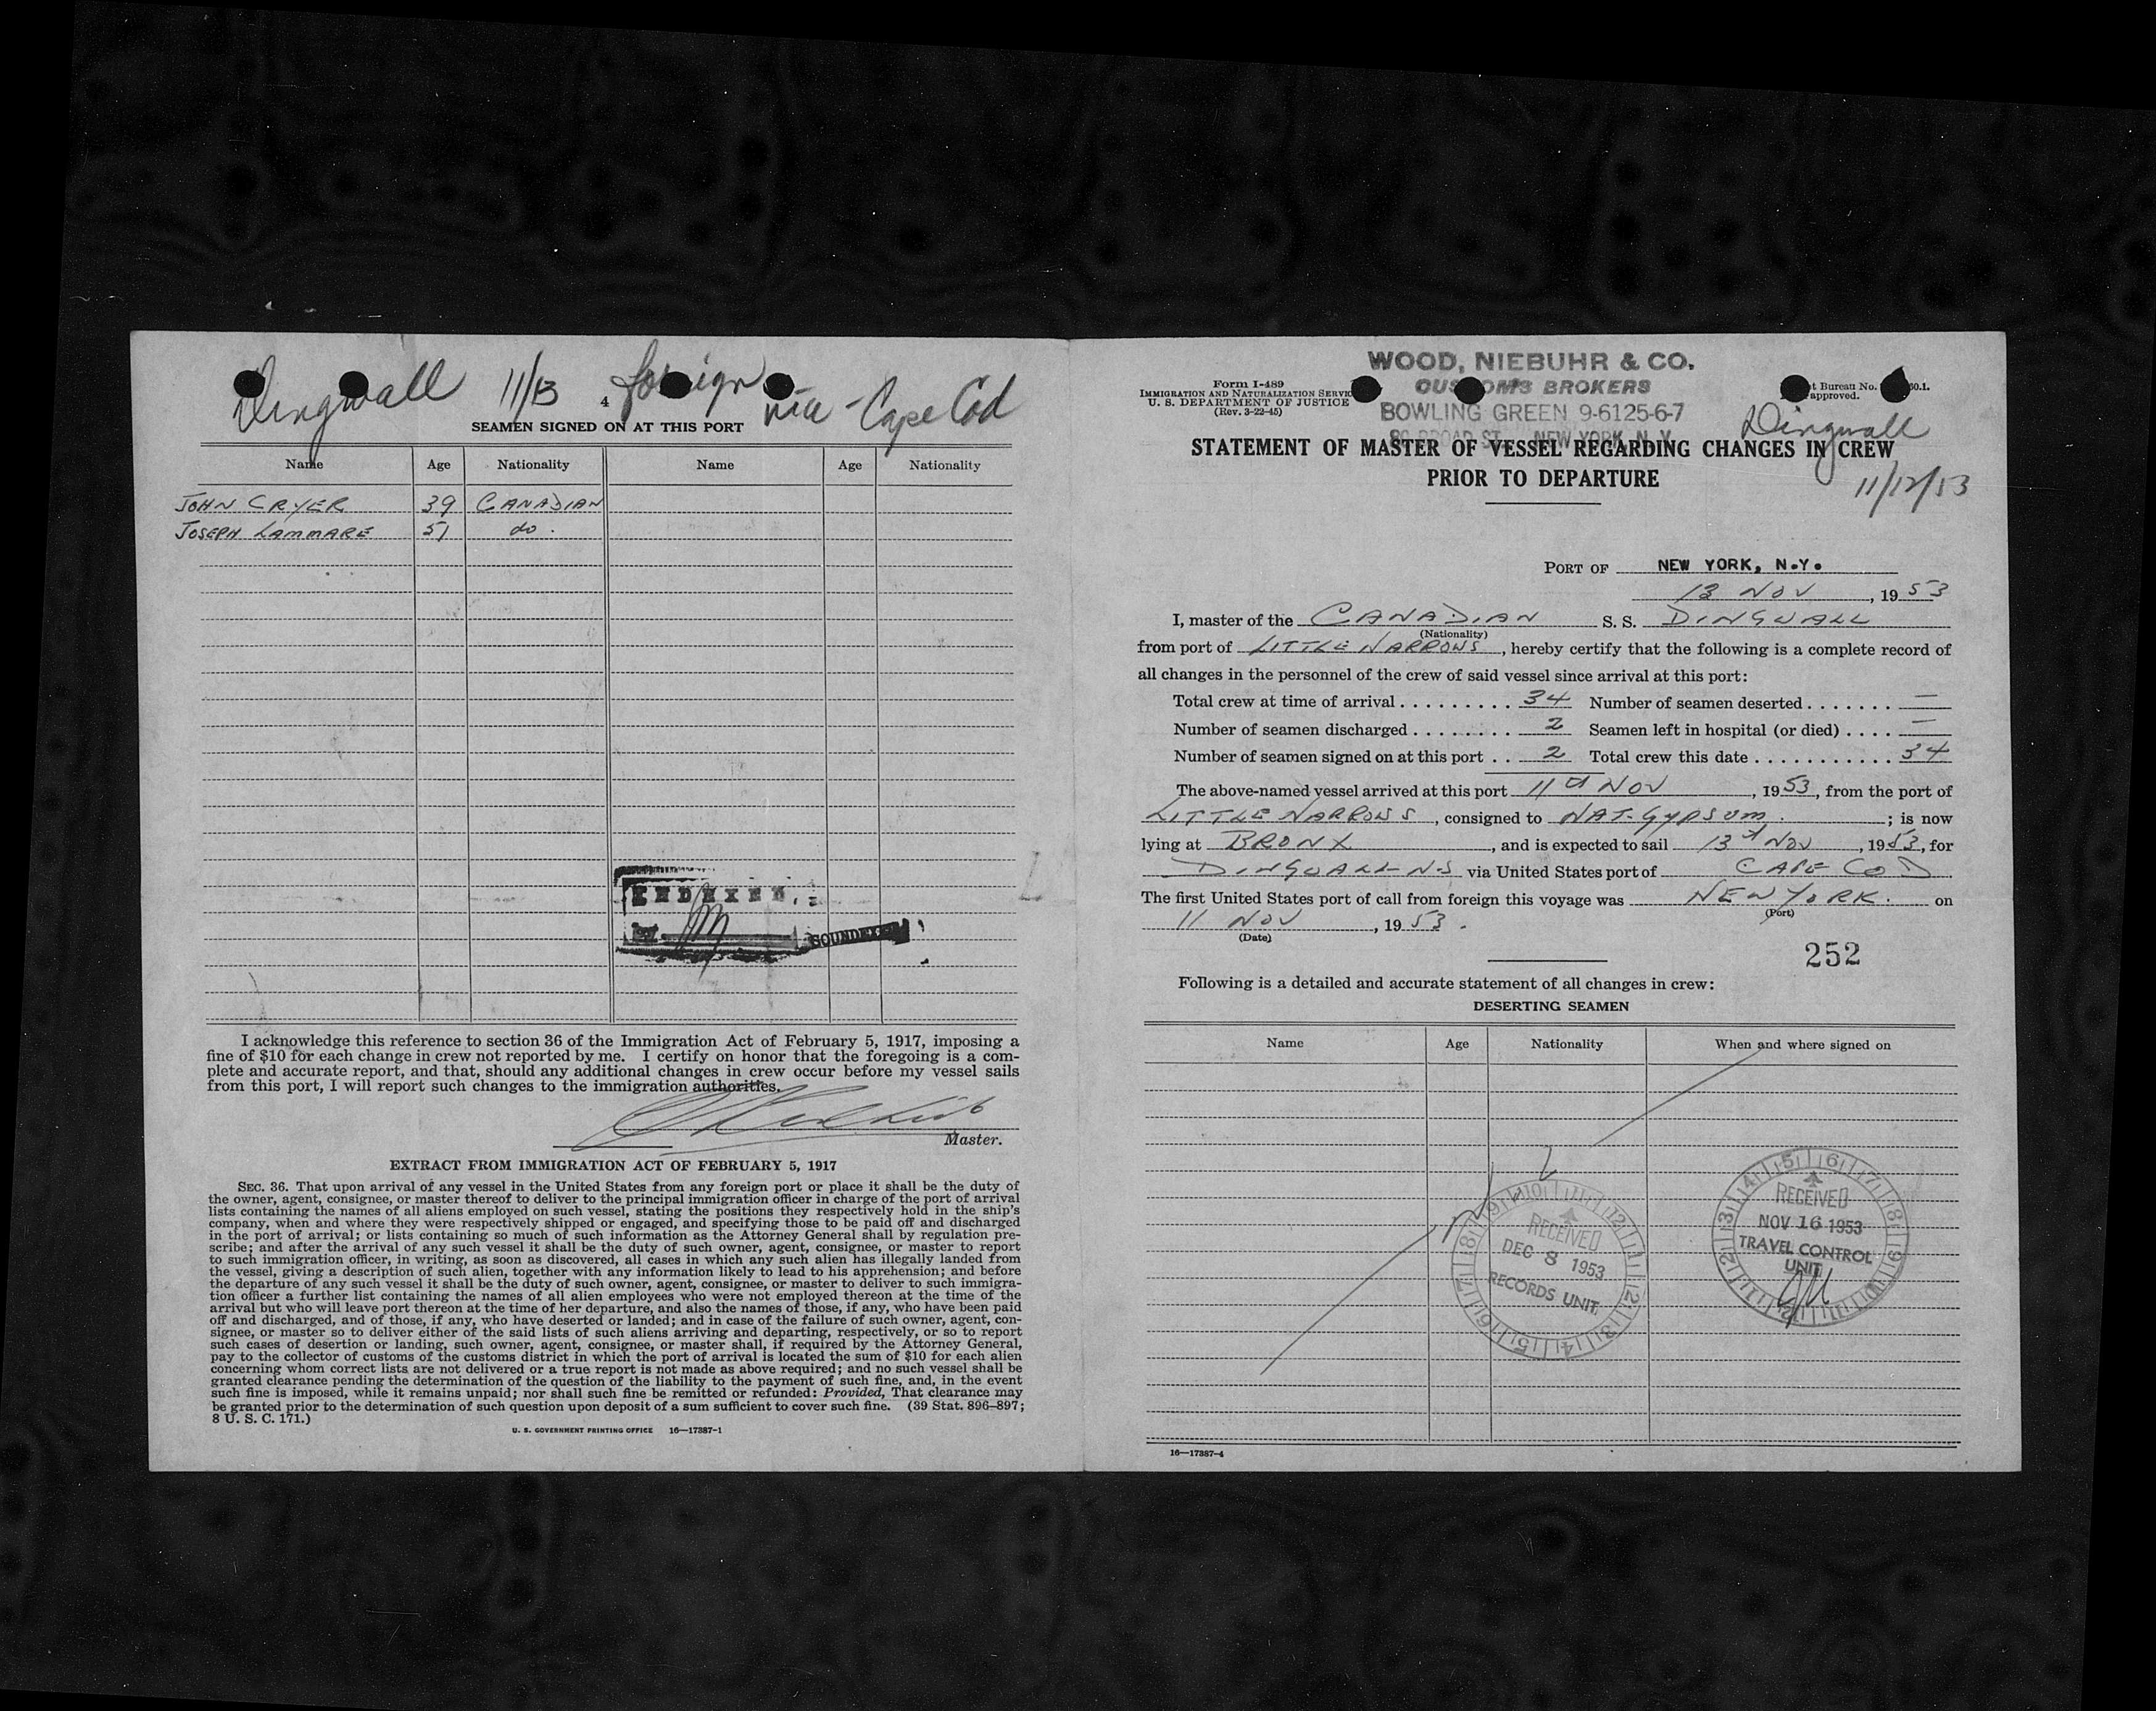 Dingwall 11/13 4 foreign via - Cape Cod
SEAMEN SIGNED ON AT THIS PORT
Name Age Nationality Name Age Nationality
JOHN CRYER 39 CANADIAN
JOSEPH LAMMARE 51 do.
INDEXED
SOUNDEXED
I acknowledge this reference to section 36 of the Immigration Act of February 5, 1917, imposing a
fine of $10 for each change in crew not reported by me. I certify on honor that the foregoing is a com-
plete and accurate report, and that, should any additional changes in crew occur before my vessel sails
from this port, I will report such changes to the immigration authorities.
Master.
EXTRACT FROM IMMIGRATION ACT OF FEBRUARY 5, 1917
SEC. 36. That upon arrival of any vessel in the United States from any foreign port or place it shall be the duty of
the owner, agent, consignee, or master thereof to deliver to the principal immigration officer in charge of the port of arrival
lists containing the names of all aliens employed on such vessel, stating the positions they respectively hold in the ship's
company, when and where they were respectively shipped or engaged, and specifying those to be paid off and discharged
in the port of arrival; or lists containing so much of such information as the Attorney General shall by regulation pre-
scribe; and after the arrival of any such vessel it shall be the duty of such owner, agent, consignee, or master to report
to such immigration officer, in writing, as soon as discovered, all cases in which any such alien has illegally landed from
the vessel, giving a description of such alien, together with any information likely to lead to his apprehension; and before
the departure of any such vessel it shall be the duty of such owner, agent, consignee, or master to deliver to such immigra-
tion officer a further list containing the names of all alien employees who were not employed thereon at the time of the
arrival but who will leave port thereon at the time of her departure, and also the names of those, if any, who have been paid
off and discharged, and of those, if any, who have deserted or landed; and in case of the failure of such owner, agent, con-
signee, or master so to deliver either of the said lists of such aliens arriving and departing, respectively, or so to report
such cases of desertion or landing, such owner, agent, consignee, or master shall, if required by the Attorney General,
pay to the collector of customs of the customs district in which the port of arrival is located the sum of $10 for each alien
concerning whom correct lists are not delivered or a true report is not made as above required; and no such vessel shall be
granted clearance pending the determination of the question of the liability to the payment of such fine, and, in the event
such fine is imposed, while it remains unpaid; nor shall such fine be remitted or refunded: Provided, That clearance may
be granted prior to the determination of such question upon deposit of a sum sufficient to cover such fine. (39 Stat. 896–897;
8 U. S. C. 171.)
U. S. GOVERNMENT PRINTING OFFICE 16—17387-1
WOOD, NIEBUHR & CO.
CUSTOM'S BROKERS
BOWLING GREEN 9-6125-6-7
BROAD ST. NEW YORK, N.Y.
Form I-489
IMMIGRATION AND NATURALIZATION SERVIC
U. S. DEPARTMENT OF JUSTICE
(Rev. 3-22-45)
t Bureau No. 0.1.
approved.
Dingwall
11/12/53
STATEMENT OF MASTER OF VESSEL REGARDING CHANGES IN CREW
PRIOR TO DEPARTURE
PORT OF NEW YORK, N.Y.
13 NOV, 1953
I, master of the CANADIAN S. S. DINGWALL
(Nationality)
from port of LITTLE NARROWS, hereby certify that the following is a complete record of
all changes in the personnel of the crew of said vessel since arrival at this port:
Total crew at time of arrival . . . . . . . . . 34 Number of seamen deserted . . . . . . . —
Number of seamen discharged . . . . . . . . 2 Seamen left in hospital (or died) . . . . —
Number of seamen signed on at this port . . 2 Total crew this date . . . . . . . . . . . 34
The above-named vessel arrived at this port 11th NOV, 1953, from the port of
LITTLE NARROWS, consigned to NAT. GYPSUM.; is now
lying at BRONX, and is expected to sail 13th NOV, 1953, for
DINGWALL N-S via United States port of CAPE COD.
The first United States port of call from foreign this voyage was NEW YORK. on
(Port)
11 NOV, 1953.
(Date)
252
Following is a detailed and accurate statement of all changes in crew:
DESERTING SEAMEN
Name Age Nationality When and where signed on
RECEIVED
DEC 8 1953
RECORDS UNIT
RECEIVED
NOV 16 1953
TRAVEL CONTROL
UNIT
16—17387-4